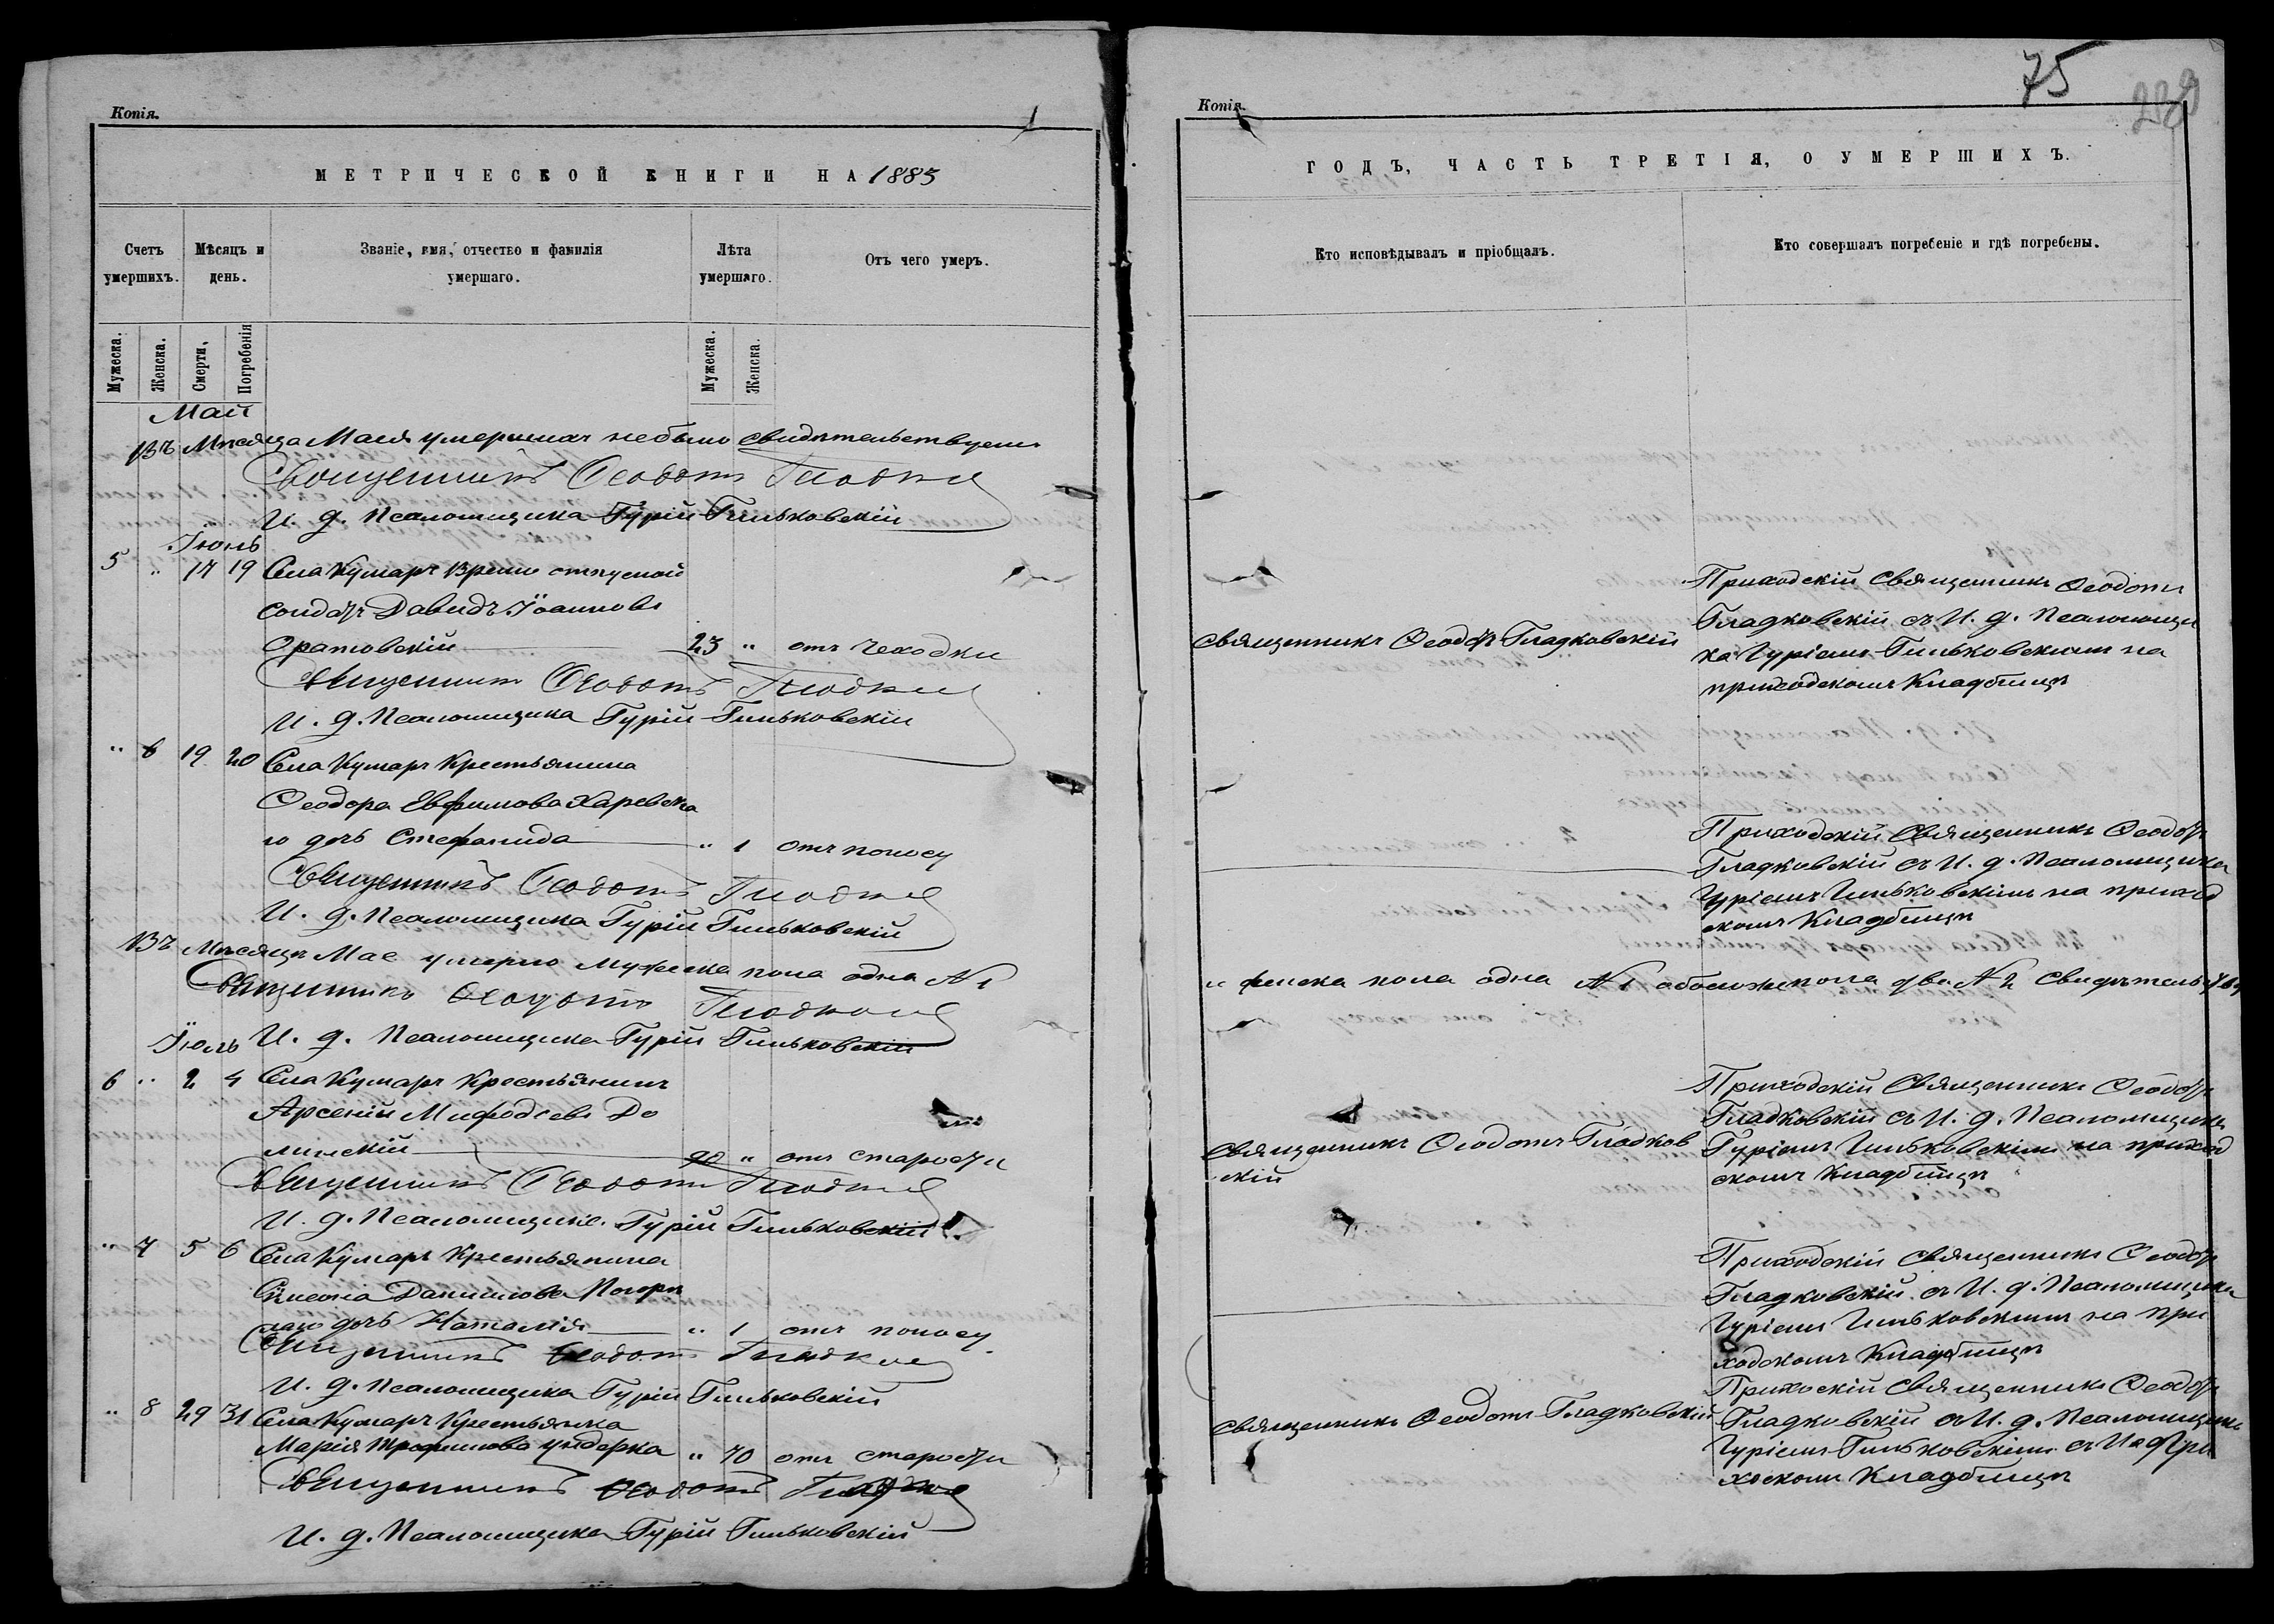 Копія.
МЕТРИЧЕСКОЙ КНИГИ НА 1885
Счетъ умершихъ.
Мѣсяцъ и день.
Званіе, имя, отчество и фамилія умершаго.
Лѣта умершаго.
Отъ чего умеръ.
Мужеска.
Женска.
Смерти,
Погребенія
Мужеска.
Женска.
Май
Въ Мѣсяца Мая умершихъ небыло свидѣтельствуемъ
Священникъ Ѳеодотъ
И. д. Псаломщика Гурій Гиньковскій
Іюнь
5 " 17 19 Села Кумаръ Време отпускной
солдатъ Давидъ Іоанновъ
Оратовскій 23 " отъ чахотки
Священникъ Ѳеодотъ
И. д. Псаломщика Гурій Гиньковскій
" 6 19 20 Села Кумаръ Крестьянина
Ѳеодора Евфимова Харевска
го дочь Стефанида " 1 отъ поносу
Священникъ Ѳеодотъ
И. д. Псаломщика Гурій Гиньковскій
Въ Мѣсяцѣ Мае умерло мужеска пола одна № 1
Священникъ Ѳеодотъ
Іюль И. д. Псаломщика Гурій Гиньковскій
6 " 2 4 Села Кумаръ Крестьянинъ
Арсеній Мифодіевъ До
линскій 90 " отъ старости
Священникъ Ѳеодотъ
И. д. Псаломщика Гурій Гиньковскій
" 7 5 6 Села Кумаръ Крестьянина
Данилова
дочь Наталія " 1 отъ поносу
Священникъ Ѳеодотъ
И. д. Псаломщика Гурій Гиньковскій
" 8 29 31 Села Кумаръ Крестьянка
Марія Трофимова " 70 отъ старости
Священникъ Ѳеодотъ
И. д. Псаломщика Гурій Гиньковскій
75
Копія.
ГОДЪ, ЧАСТЬ ТРЕТІЯ, О УМЕРШИХЪ.
Кто исповѣдывалъ и пріобщалъ.
Кто совершалъ погребеніе и гдѣ погребены.
Священникъ Ѳеодотъ Гладковскій
Приходскій Священникъ Ѳеодотъ
Гладковскій съ И. д. Псаломщи
ка Гуріемъ Гиньковскимъ на
приходскомъ Кладбищѣ
Приходскій Священникъ Ѳеодотъ
Гладковскій съ И. д. Псаломщика
Гуріемъ Гиньковскимъ на приход
скомъ Кладбищѣ
и женска пола одна № 1 обоего пола два № 2
Священникъ Ѳеодотъ Гладков
скій
Приходскій Священникъ Ѳеодотъ
Гладковскій съ И. д. Псаломщика
Гуріемъ Гиньковскимъ на приход
скомъ Кладбищѣ
Приходскій Священникъ Ѳеодотъ
Гладковскій съ И. д. Псаломщика
Гуріемъ Гиньковскимъ на при
ходскомъ Кладбищѣ
Священникъ Ѳеодотъ Гладковскій
Прихоскій Священникъ Ѳеодотъ
Гладковскій съ И. д. Псаломщика
Гуріемъ Гиньковскимъ
хоскомъ Кладбищѣ